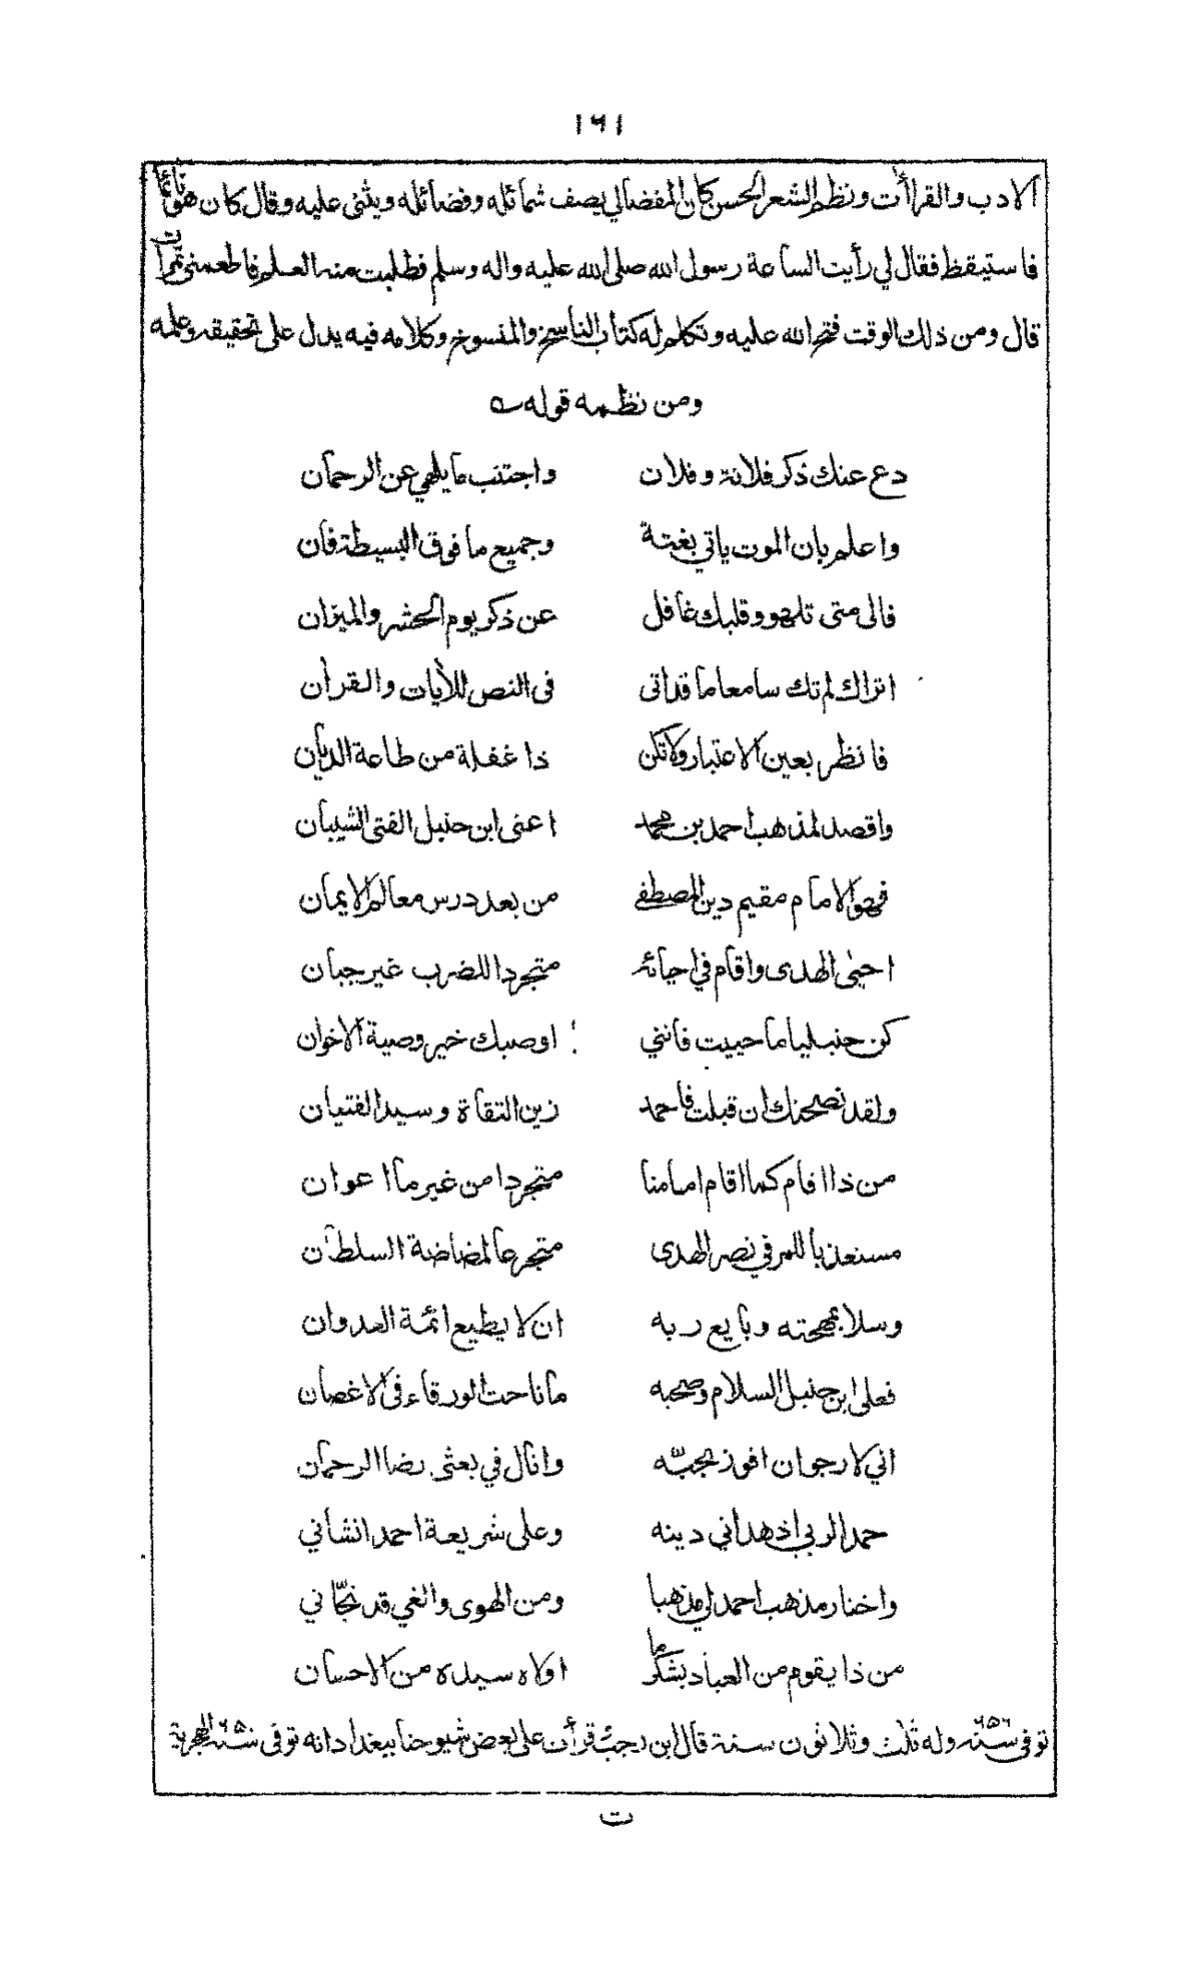 ١٦١
الادب والقرأت ونظم الشعر الحسن كان المفضالي يصف شمائله وفضائله ويثنى عليه وقال كان هو نائما
فاستيقظ فقال لي رأيت الساعة رسول الله صلى الله عليه واله وسلم فطلبت منه العلم فاطعمنى تمرات
قال ومن ذلك الوقت فتح الله عليه وتكلم له كتاب الناسخ والمنسوخ وكلامه فيه يدل على تحقيقه وعلمه
ومن نظمه قوله
دع عنك ذكر فلانة وفلان واجتنب ما يلهي عن الرحمان
واعلم بان الموت ياتي بغتة وجميع ما فوق البسيطة فان
فالى متى تلهو وقلبك غافل عن ذكر يوم الحشر والميزان
اتراك لم تك سامعا ما قد اتى فى النص للأيات والقرأن
فانظر بعين الاعتبار ولا تكن ذا غفلة من طاعة الديان
واقصد لمذهب احمد بن محمد اعنى ابن حنبل الفتى الشيبان
فهو الامام مقيم دين المصطفى من بعد درس معالم الايمان
احيى الهدى واقام في احيائه متجردا للضرب غير جبان
كن حنبليا ما حييت فانني اوصيك خير وصية الاخوان
ولقد نصحتك ان قبلت فاحمد زين التقاة وسيد الفتيان
من ذا اقام كما اقام امامنا متجردا من غير ما اعوان
مستعذبا للمر في نصر الهدى متجرعا لمضاضة السلطان
وسلا بمهجته وبايع ربه ان لا يطيع ائمة العدوان
فعلى ابن حنبل السلام وصحبه ما ناحت الورقاء فى الاغصان
اني لارجو ان افوز بحبّه وانال في بعثى رضا الرحمان
حمدا لربي اذ هداني دينه وعلى شريعة احمد انشاني
واختار مذهب احمد لي مذهبا ومن الهوى والغي قد نجّاني
من ذا يقوم من العباد بشكر ما اولاه سيده من الاحسان
توفى سنة ٦٥٦ وله ثلث وثلاثون سنة قال ابن رجب قرأت على بعض شيوخنا ببغداد انه توفى سنة الهجرية
ت